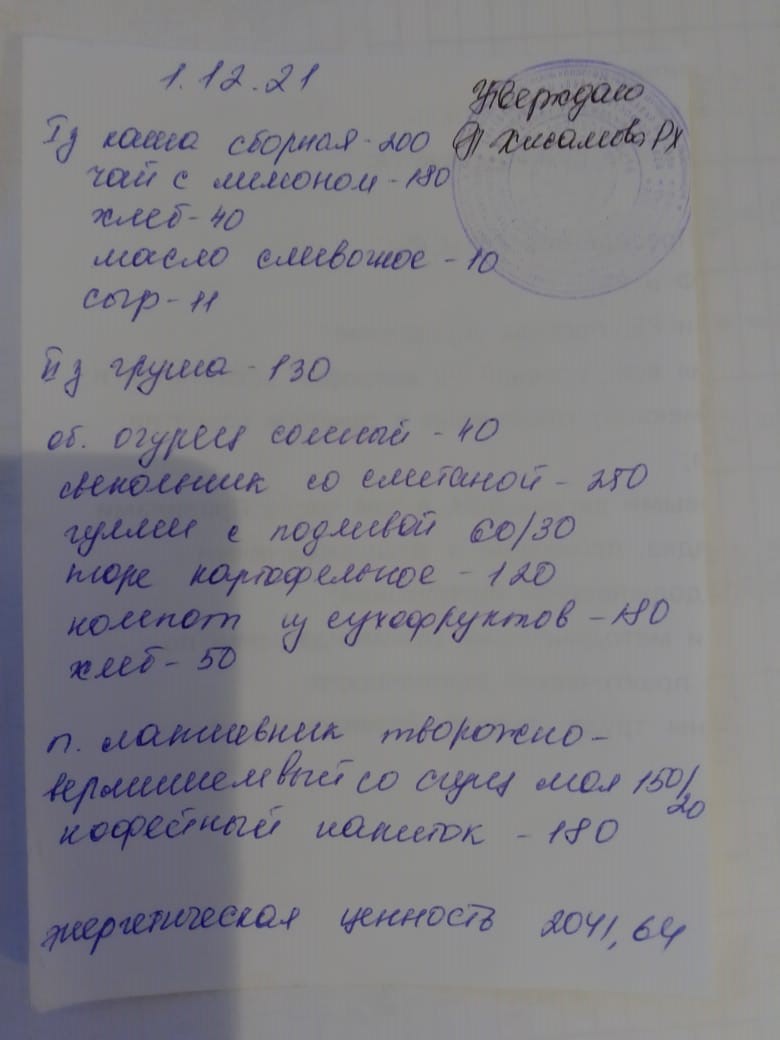 1.12.21
Утверждаю
Хисамова РХ
Iз каша сборная - 200
чай с лимоном - 180
хлеб - 40
масло сливочное - 10
сыр - 11
IIз груша - 130
об. огурец соленый - 40
свекольник со сметаной - 250
гуляш с подливой 60/30
пюре картофельное - 120
компот из сухофруктов - 180
хлеб - 50
п. лапшевник творожно-
вермишелевый со сгущ мол 150/20
кофейный напиток - 180
энергетическая ценность 2041,64